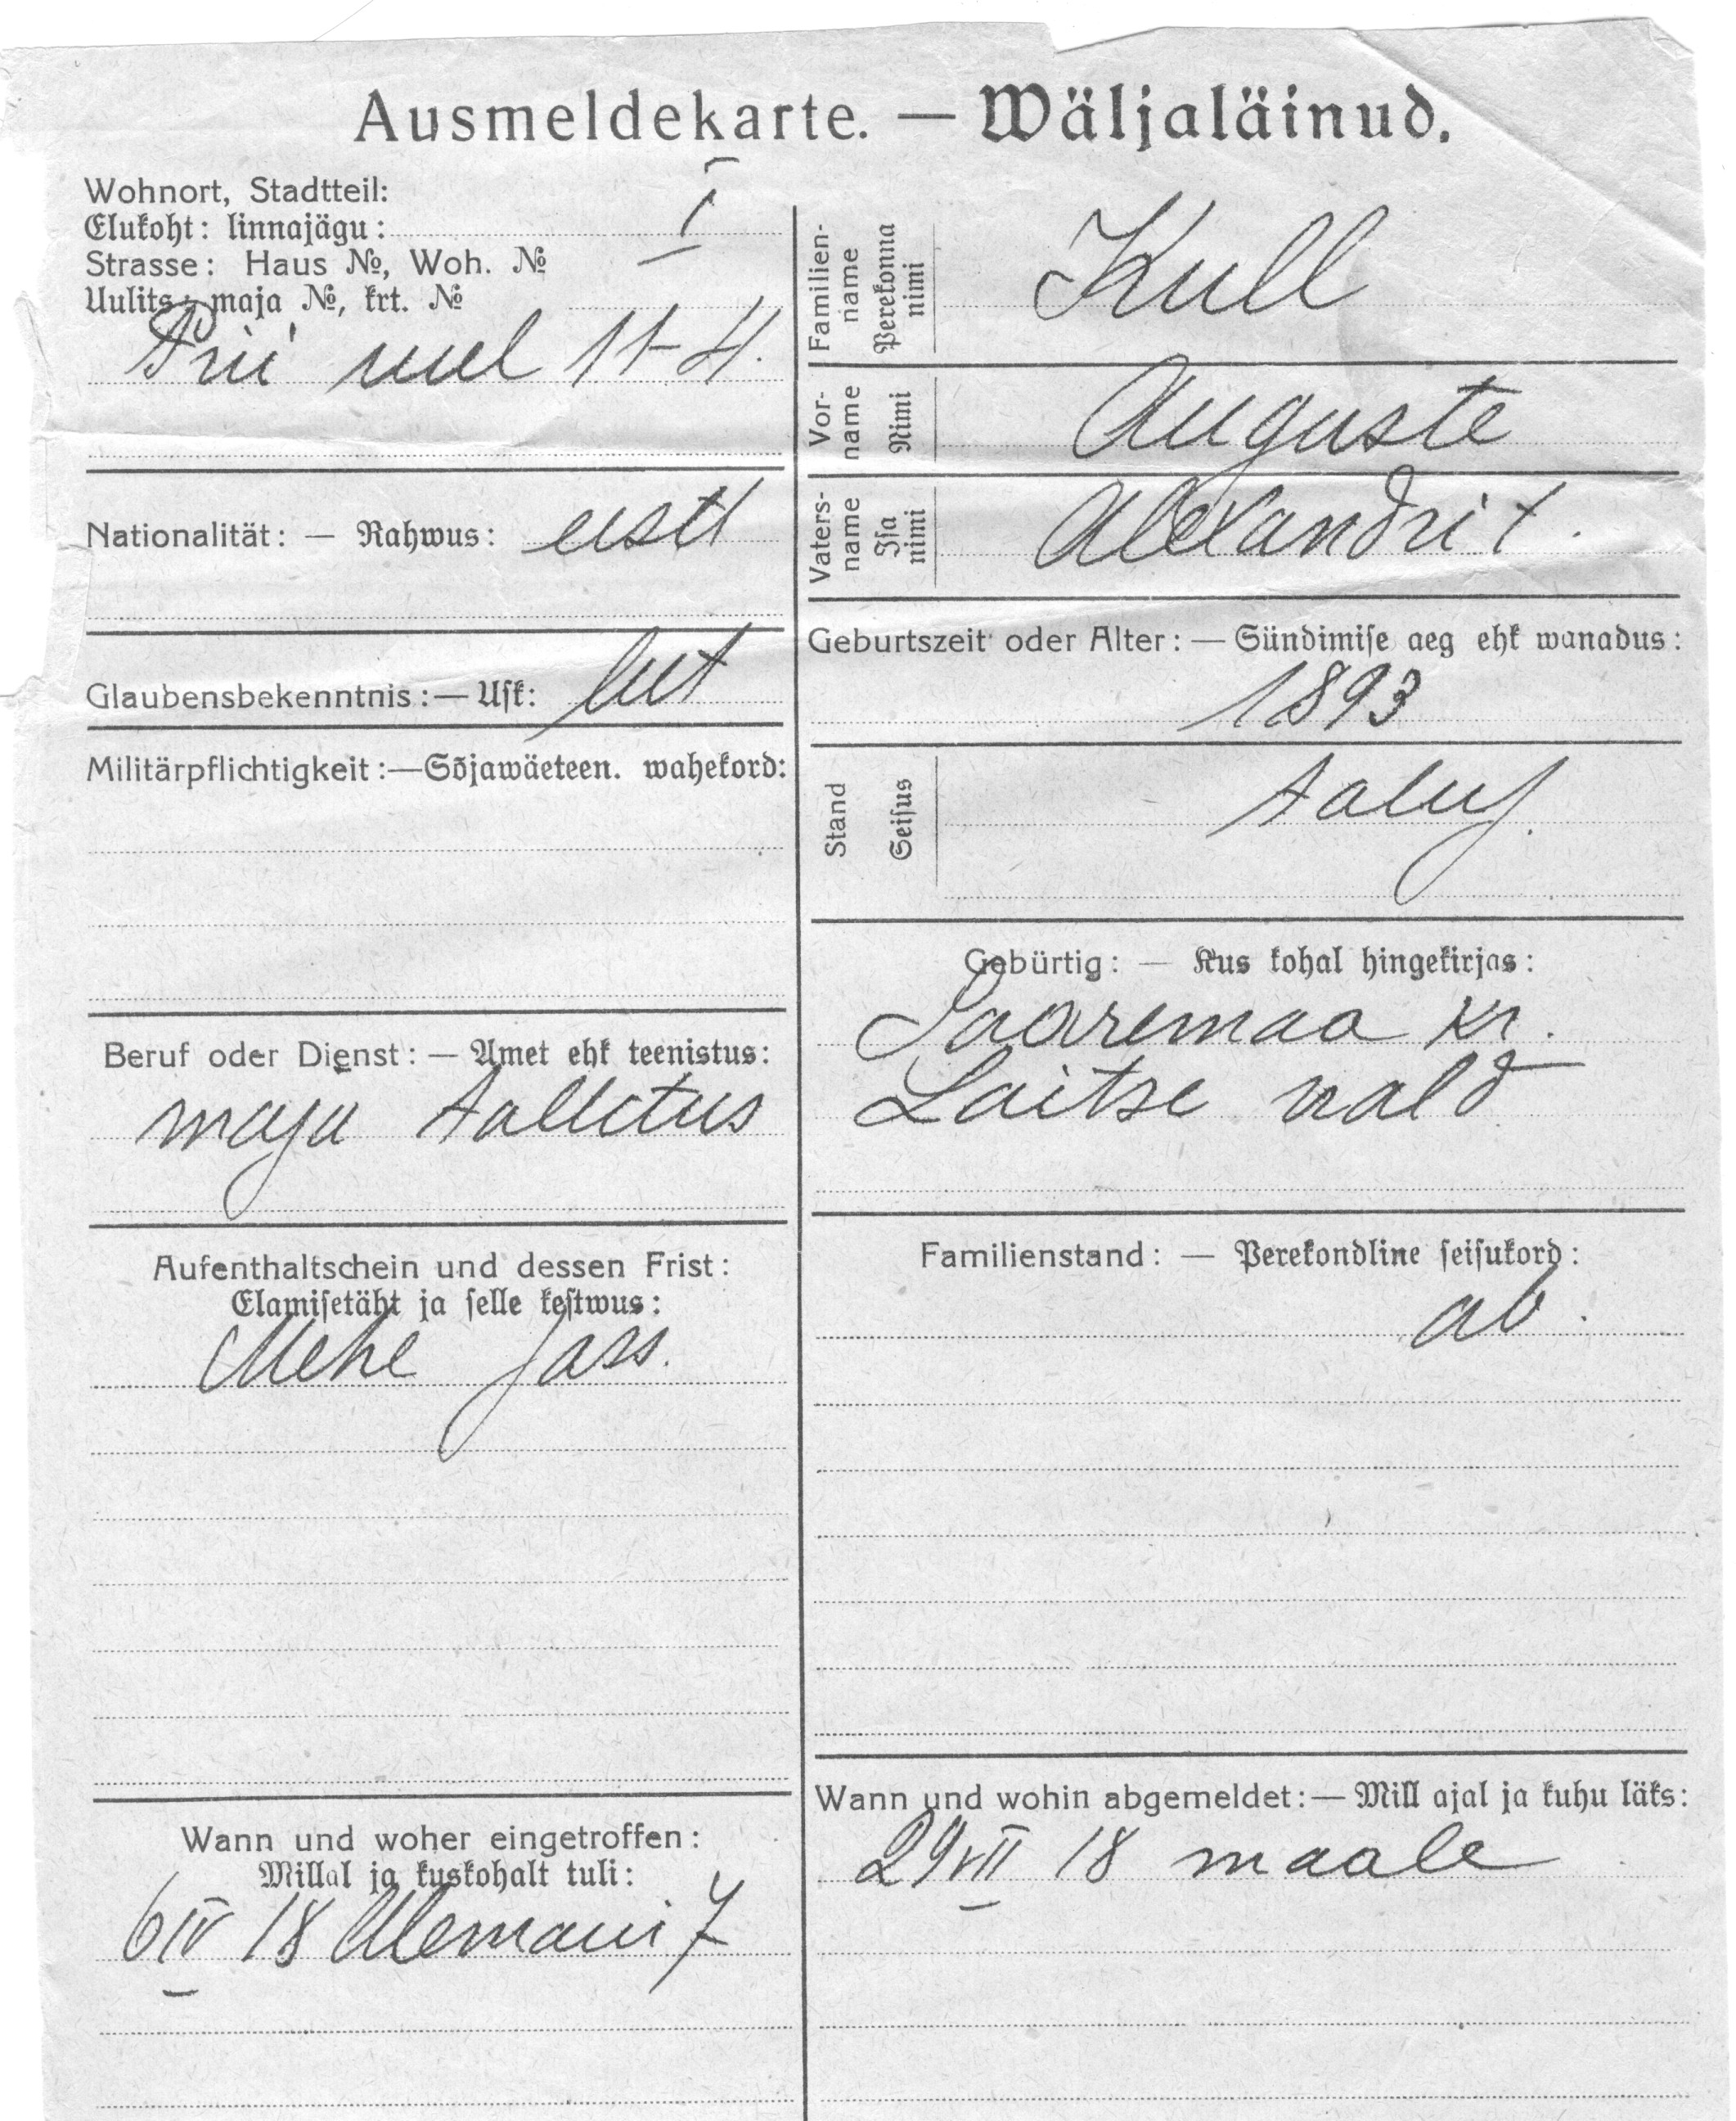 Ausmeldekarte. — Wäljaläinud.
Wohnort, Stadtteil:
Elukoht: linnajägu: I
Strasse: Haus №, Woh. №
Uulits: maja №, krt. №
11-4.
Nationalität: — Rahwus: eestl
Glaubensbekenntnis: — Usk: lut
Militärpflichtigkeit: — Sõjawäeteen. wahekord:
Beruf oder Dienst: — Amet ehk teenistus:
maja talletus
Aufenthaltschein und dessen Frist:
Elamisetäht ja selle kestwus:
Mehe pass.
Wann und woher eingetroffen:
Millal ja kuskohalt tuli:
6 IV 18 7
Familien-name Perekonna nimi Kull
Vor-name Nimi Auguste
Vaters-name Isa nimi Alexandri t.
Geburtszeit oder Alter: — Sündimise aeg ehk wanadus:
1893
Stand Seisus talup.
Gebürtig: — Kus kohal hingekirjas:
Saaremaa kr.
Laitse vald
Familienstand: — Perekondline seisukord:
ab.
Wann und wohin abgemeldet: — Mill ajal ja kuhu läks:
29 VII 18 maale